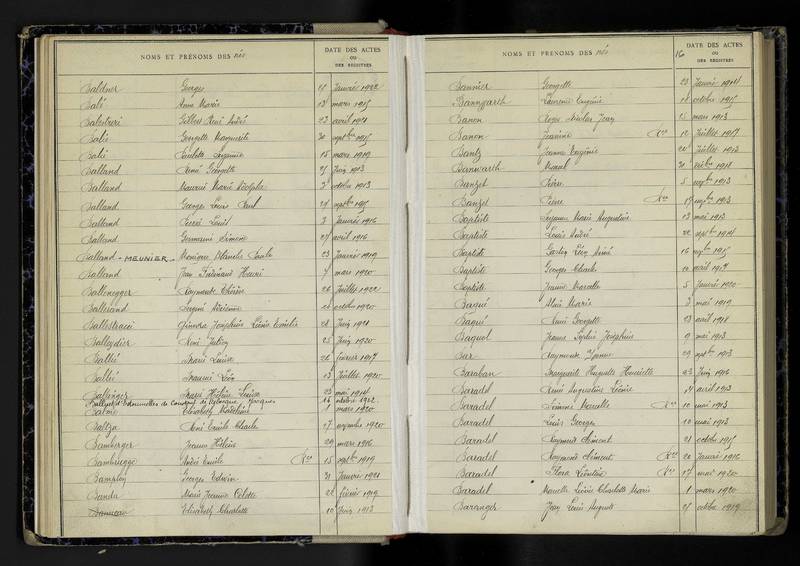 NOMS ET PRÉNOMS DES nés
DATE DES ACTES
OU
DES REGISTRES
Baldner Georges 11 Janvier 1922
Bali Anna Marie 13 mars 1915
Gilbert René André 23 avril 1921
Balié Georgette Marguerite 30 septbre 1915
Balié 15 mars 1919
Balland René Georgette 25 Juin 1913
Balland Maurice Marie Adolphe 3 octobre 1913
Balland Georges Louis Paul 29 septbre 1915
Balland Pierre Louis 3 Janvier 1916
Balland Germaine Simone 27 avril 1916
Balland - MEUNIER - Monique Blanche 23 Janvier 1919
Balland Jean Ferdinand Henri 7 mars 1920
Ballenegger Raymonde Thérèse 26 Juillet 1922
Ballerand octobre 1920
Ballestracci Ginevra Joséphine 28 Juin 1921
Balleydier René Julien 25 Juin 1920
Ballié Marie Louise 22 février 1917
Ballié Maurice Léon 13 Juillet 1920
Ballinger Marie Hélène Louise 23 mai 1914
16 octobre 1922
Balmé Elisabeth Madeleine 1 mars 1920
Baltza René Emile Charles 27 novembre 1920
Bamberger Jeanne Hélène 29 mars 1916
Bambrugge André Emile Ron 15 septbre 1919
Bamploy Georges Edwin 31 Janvier 1921
Banda Marie Jeanne Odette 22 février 1919
Banneau Elisabeth Charlotte 10 Juin 1913
NOMS ET PRÉNOMS DES nés
DATE DES ACTES
OU
DES REGISTRES
Bannier Georgette 23 Janvier 1914
Bannwarth Laurence Eugénie 12 octobre 1915
Banon Roger Nicolas Jean 25 mars 1913
Banon Jeanine Ron 12 Juillet 1917
Bantz Jeanne Eugénie 22 Juillet 1913
Banwarth Marcel 1918
Banzet Pierre 5 septbre 1913
Banzet Pierre Ron 19 septbre 1913
Baptiste Suzanne Marie Augustine 13 mai 1913
Baptiste Louis André 22 septbre 1914
Baptiste Gaston Léon Aimé 16 septbre 1915
Baptiste Georges Charles 10 avril 1919
Baptiste Jeanne Marcelle 5 Janvier 1920
Baqué Alice Marie 3 mai 1919
Baqué René Georgette 23 avril 1918
Baquel Jeanne Sophie Joséphine 9 mai 1913
Bar Raymonde Yvonne 29 septbre 1913
Baraban Marguerite Huguette Henriette 23 Juin 1916
Baradel René Augustine Léonie 14 avril 1913
Baradel Simone Marcelle Ron 10 mai 1913
Baradel Louis Georges 10 mai 1913
Baradel Raymond Clément 21 octobre 1915
Baradel Raymond Clément Ron 20 Janvier 1916
Baradel Flora Léontine Ron 17 mai 1920
Baradel Marcelle Lucie Charlotte Marie 1 mars 1920
Baranger Jean Louis Auguste 25 octobre 1919